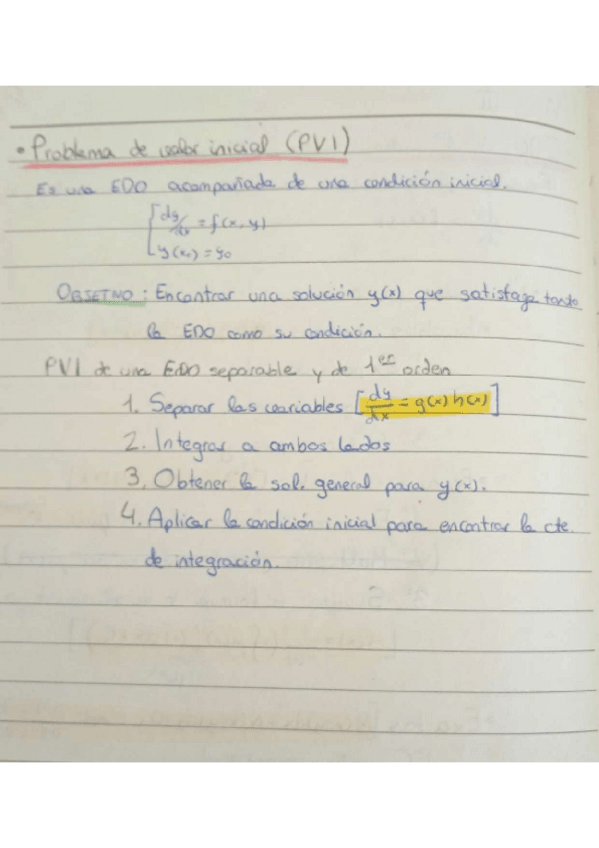 • Problema de valor inicial (PVI)
Es una EDO acompañada de una condición inicial.
dy/dx = f(x,y)
y(x₀) = y₀
OBJETIVO: Encontrar una solución y(x) que satisfaga tanto
la EDO como su condición.
PVI de una EDO separable y de 1er orden
1. Separar las variables [dy/dx = g(x) h(x)]
2. Integrar a ambos lados
3. Obtener la sol. general para y(x).
4. Aplicar la condición inicial para encontrar la cte.
de integración.